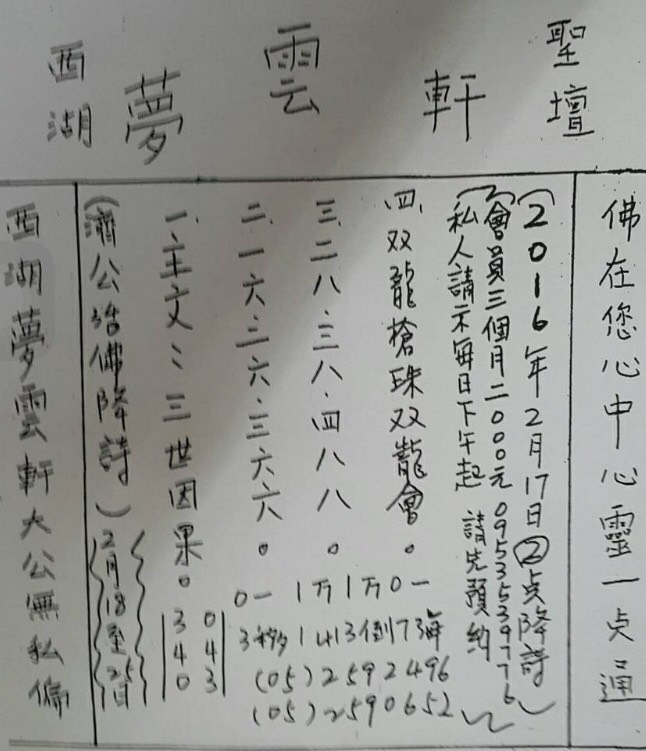 聖壇
軒
雲
夢
西湖
佛在您心中心靈一点通
(2016年2月17日②点降詩)
(會員三個月二000元0953539776
私人請示每日下午起 請先預約)
四、双龍槍珠双龍會。
三、二八、三八、四八八。
二、一六、二六、三六六。
一、主文:三世因果。
(濟公活佛降詩)
2月18至25日
西湖夢雲軒大公無私偏
0一 1万1万0一
3秒 1413倒73海
(05)2592496
(05)2590652
043
340